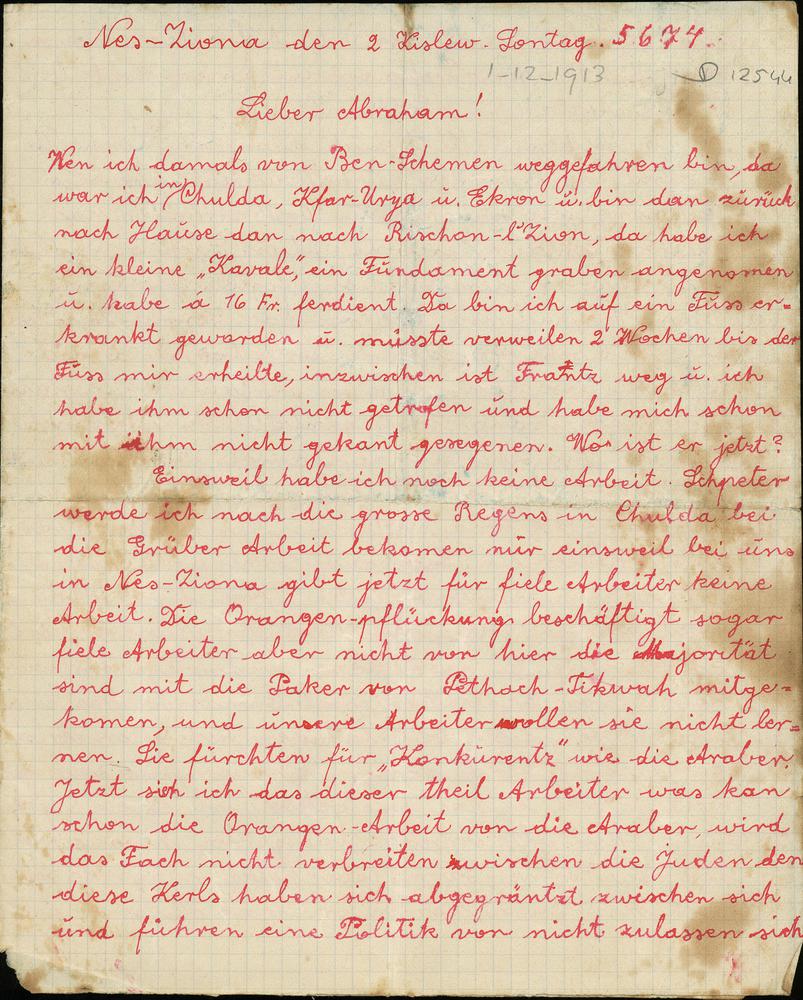 Nes-Ziona den 2 Kislew. Sontag. 5674.
1-12-1913 12544
Lieber Abraham!
Wen ich damals von Ben-Schemen weggefahren bin, da
war ich in Chulda, Kfar-Urya u. Ekron u. bin dan zurück
nach Hause dan nach Rischon-l'Zion, da habe ich
ein kleine „Kavale", ein Fundament graben angenomen
u. habe á 16 Fr. ferdient. Da bin ich auf ein Fuss er=
krankt geworden u. müsste verweilen 2 Wochen bis der
Fuss mir erheilte, inzwischen ist Frantz weg u. ich
habe ihm schon nicht getrofen und habe mich schon
mit ihm nicht gekant gesegenen. Wo ist er jetzt?
Einsweil habe ich noch keine Arbeit. Schpeter
werde ich nach die grosse Regens in Chulda bei
die Grüber Arbeit bekomen nur einsweil bei uns
in Nes-Ziona gibt jetzt für fiele Arbeiter keine
Arbeit. Die Orangen-pflückung beschäftigt sogar
fiele Arbeiter aber nicht von hier die Majorität
sind mit die Paker von Pethach-Tikwah mitge=
komen, und unsere Arbeiter wollen sie nicht ler=
nen. Sie fürchten für „Konkurentz" wie die Araber.
Jetzt sieh ich das dieser theil Arbeiter was kan
schon die Orangen-Arbeit von die Araber, wird
das Fach nicht verbreiten zwischen die Juden den
diese Kerls haben sich abgegräntzt zwischen sich
und führen eine Politik von nicht zulassen sich